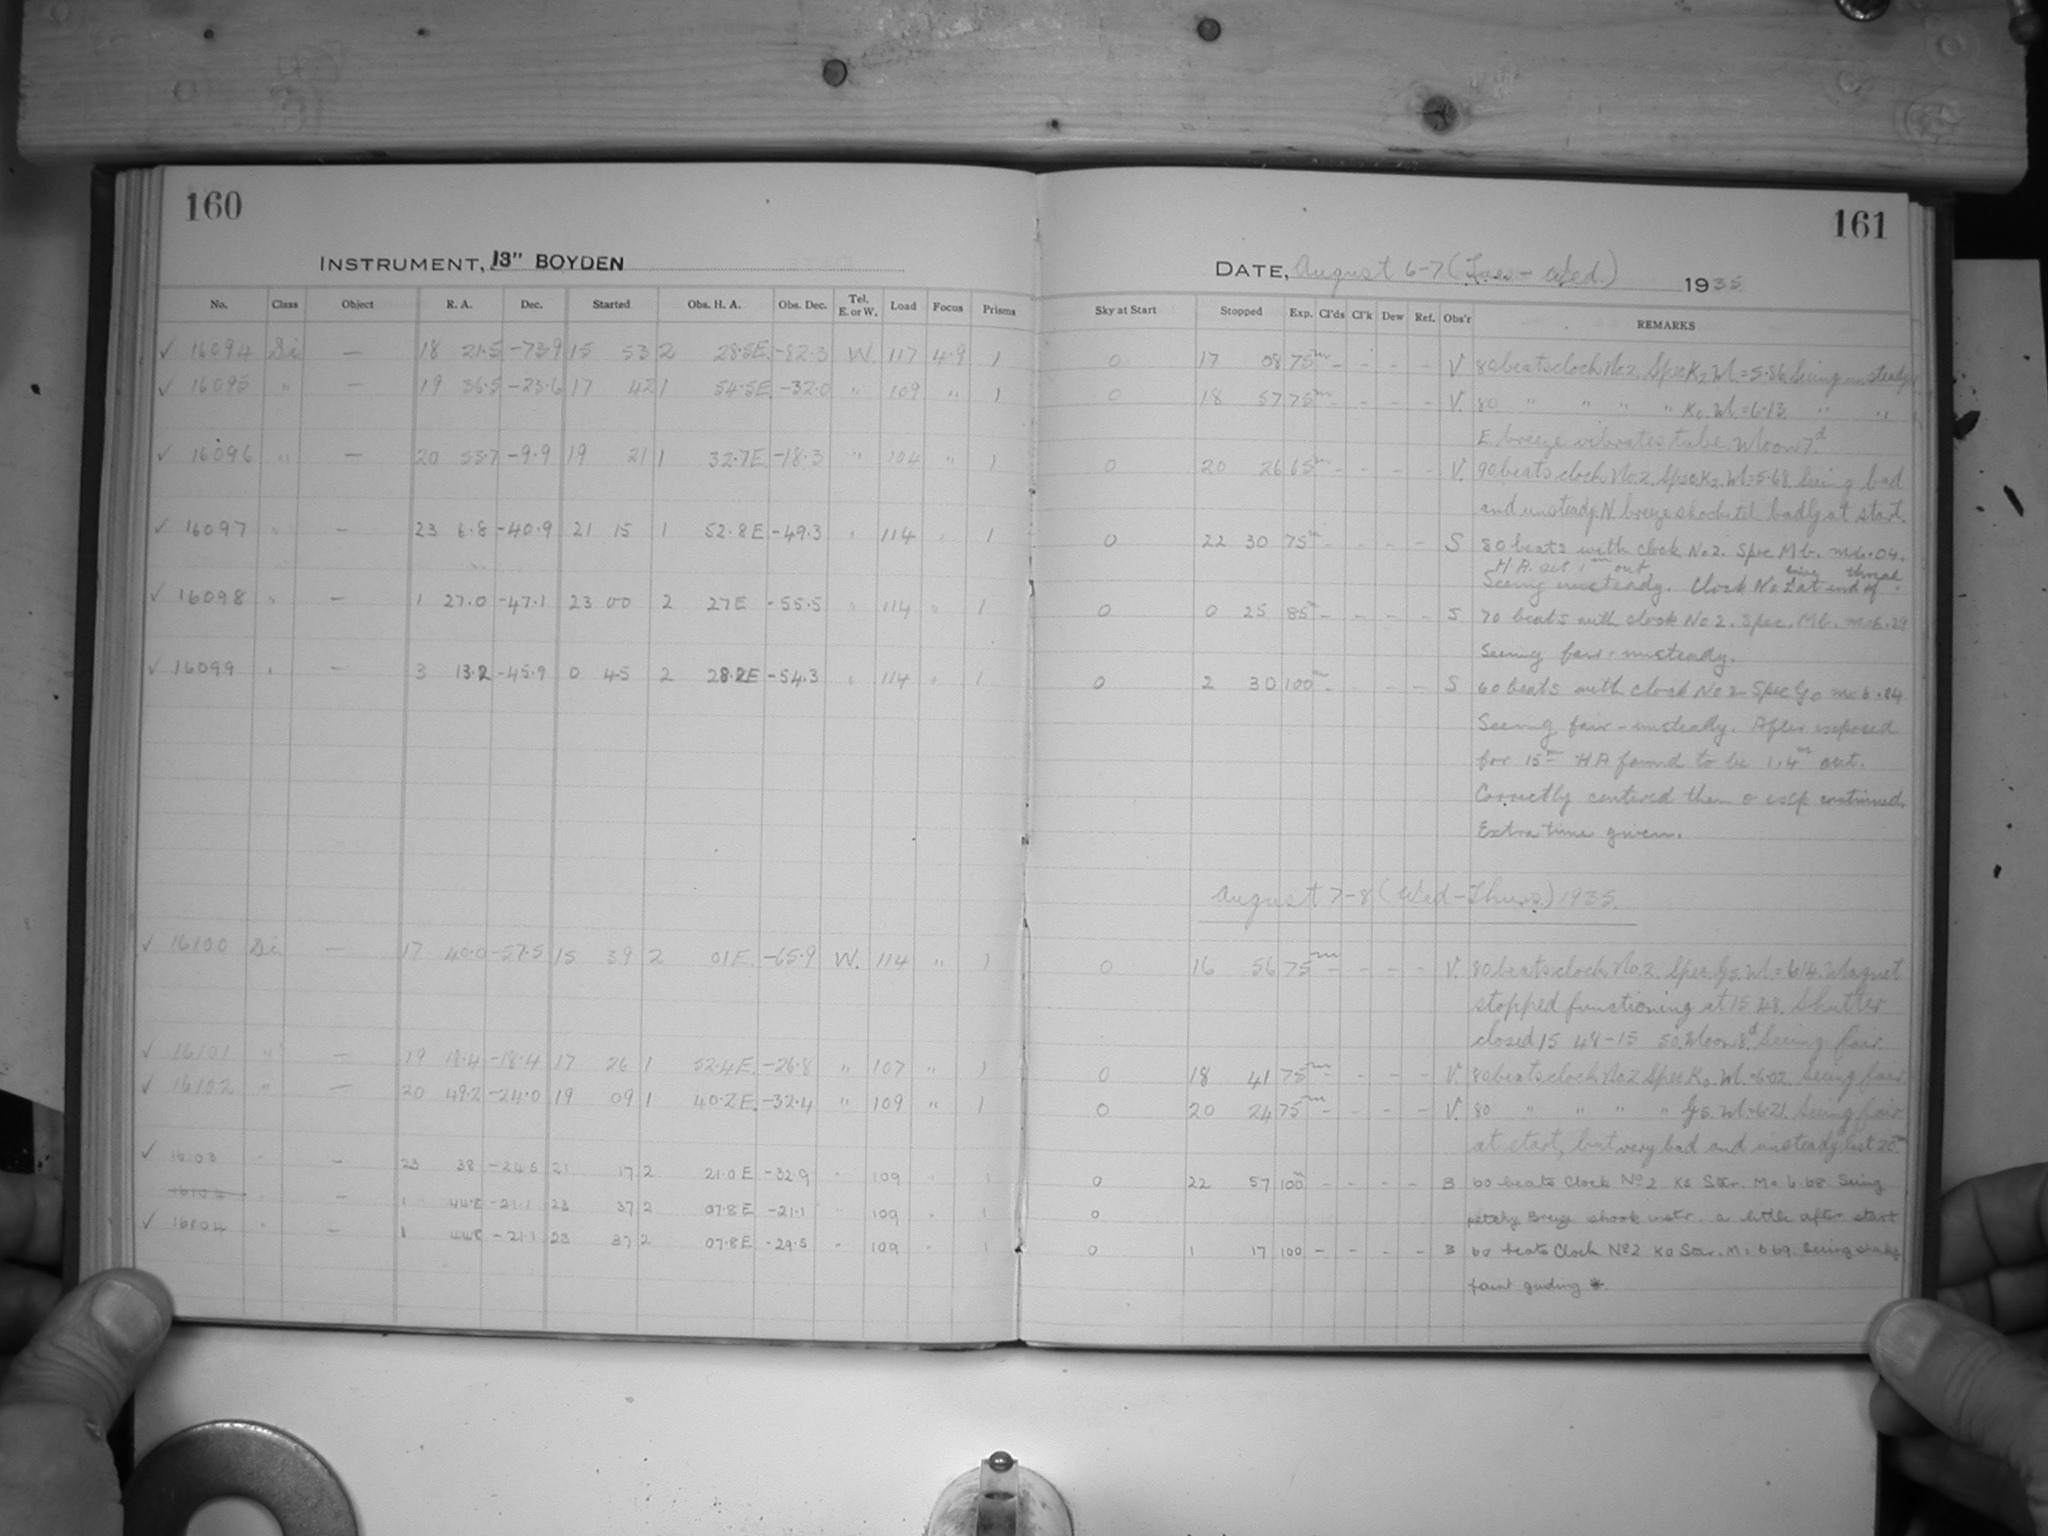 160
INSTRUMENT, 13" BOYDEN
No. Class Object R. A. Dec. Started Obs. H. A. Obs. Dec. Tel. E. or W. Load Focus Prisms
✓ 16094 Di — 18 21.5 -73.9 15 53 2 28.5E -82.3 W. 117 4.9 1
✓ 16095 " — 19 36.5 -23.6 17 42 1 54.5E -32.0 " 109 " 1
✓ 16096 " — 20 53.7 -9.9 19 21 1 32.7E -18.3 " 104 " 1
✓ 16097 " — 23 6.8 -40.9 21 15 1 52.8E -49.3 " 114 " 1
✓ 16098 " — 1 27.0 -47.1 23 00 2 27E -55.5 " 114 " 1
✓ 16099 " — 3 13.2 -45.9 0 45 2 28.2E -54.3 " 114 " 1
✓ 16100 Di — 17 40.0 -57.5 15 39 2 01E. -65.9 W. 114 " 1
✓ 16101 " — 19 18.4 -18.4 17 26 1 52.4E. -26.8 " 107 " 1
✓ 16102 " — 20 49.2 -24.0 19 09 1 40.2E. -32.4 " 109 " 1
✓ 16103 — 23 38 -24.5 21 17 2 21.0E -32.9 " 109 1
— 1 44.8 -21.1 23 37 2 07.8E -21.1 " 109 " 1
✓ 16104 " — 1 44.8 -21.1 23 37 2 07.8E -29.5 " 109 " 1
161
DATE, August 6-7 (Tues - Wed.) 1935
Sky at Start Stopped Exp. Cl'ds Cl'k Dew Ref. Obs'r REMARKS
0 17 08 75m - - - - V 80 beats clock No 2. Spec K2. M.=5.86. Seeing unsteady.
0 18 57 75m - - - - V. 80 " " " " K0. M.=6.13 " "
E breeze vibrates tube. Moon 7d
0 20 26 65m - - - - V. 90 beats clock No 2. Spec K2. M.=5.68. Seeing bad
and unsteady. N breeze shook tel badly at start.
0 22 30 75m - - - - S 80 beats with clock No 2. Spec Mb. m 6.04.
H A. set 1m out
Seeing unsteady. Clock No 2 at end of
0 0 25 85m - - - - S 70 beats with clock No 2. Spec. Mb. m 6.29
Seeing fair - unsteady.
0 2 30 100m - - - - S 60 beats with clock No 2 Spec G0 m 6.84
Seeing fair - unsteady. After exposed
for 15m H A found to be 1.4m out.
Correctly centered then & exp continued.
Extra time given.
August 7-8 (Wed - Thurs.) 1935.
0 16 56 75m - - - - V. 80 beats clock No 2. Spec G5. M.=6.14. Magnet
stopped functioning at 15 48. Shutter
closed 15 48-15 50. Moon 8d Seeing fair.
0 18 41 75m - - - - V. 80 beats clock No 2 Spec K0. M.=6.02. Seeing fair
0 20 24 75m - - - - V. 80 " " " " G5. M.=6.21. Seeing fair
at start, but very bad and unsteady last 20m
0 22 57 100m - - - - B 60 beats Clock No 2 K5 Star. M= 6.68 Seeing
0 Breeze shook instr. a little after start
0 1 17 100 - - - - B 60 beats Clock No 2 K0 Star. M= 6.69. Seeing
faint guiding *.